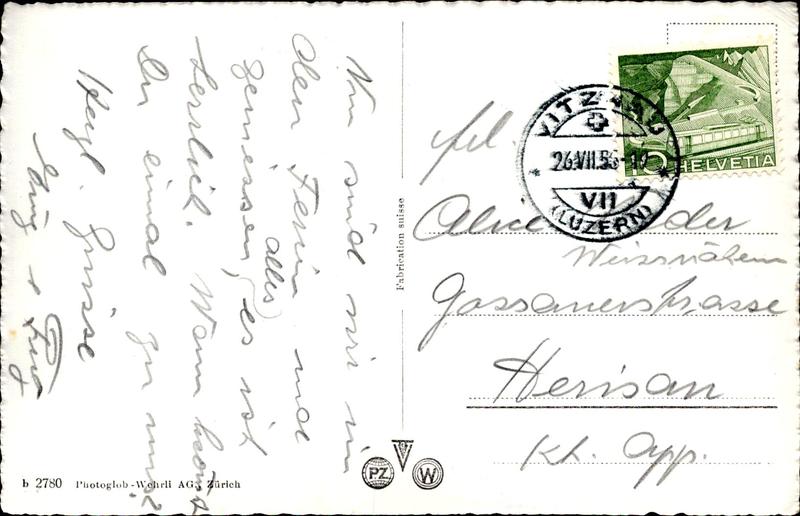 Nun sind wir in
den Ferien und
geniessen (alles) es ist
herrlich. Wann kommst
Du einmal zu uns?
Herzl. Grüsse
Fabrication suisse
b 2780 Photoglob-Wehrli AG., Zürich
PZ
W
VITZNAU
26.VII.56-10
VII
(LUZERN)
10 HELVETIA
Frl.
Alice
Weissnäherin
Gossauerstrasse
Herisau
Kt. App.